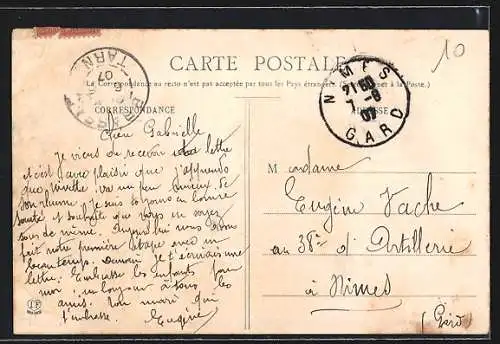 CARTE POSTALE
La Correspondance au recto n'est pas acceptée par tous les Pays étrangers. (Se renseigner à la Poste.)
CORRESPONDANCE
ADRESSE
TARN
07
NIMES
21 50
7 -6
07
GARD
10
Chère Gabrielle
Je viens de recevoir ta lettre
et c'est avec plaisir que j'apprends
que va un peu mieux de
son rhume. Je suis toujours en bonne
santé et souhaite que vous en soyez
tous de même. Aujourd'hui nous avons
fait notre première étape avec un
beau temps. Demain je t'écrirais une
lettre. Embrasse les enfants pour
moi, un bonjour à tous les
amis. Ton mari qui
t'embrasse.
Eugène
Madame
Eugène Vache
au 38e d'Artillerie
à Nîmes
(Gard)